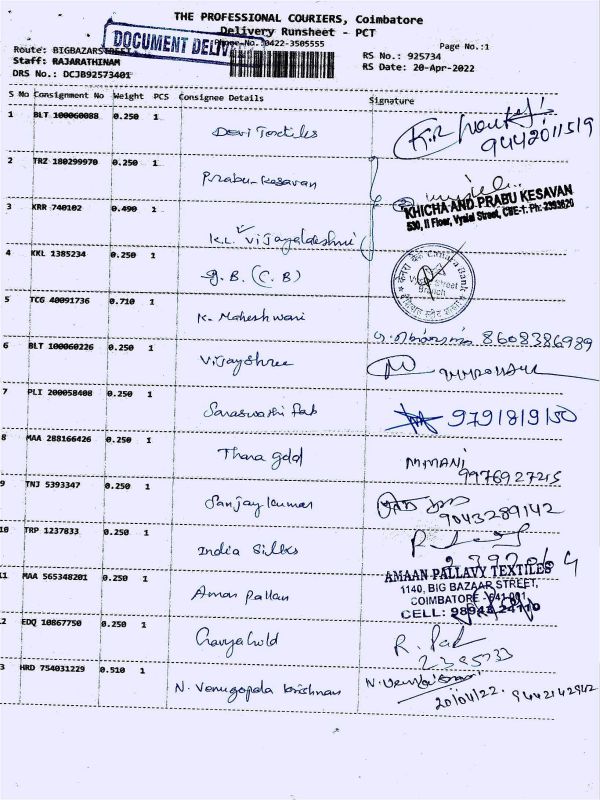 THE PROFESSIONAL COURIERS, Coimbatore
Delivery Runsheet - PCT
DOCUMENT
Phone No.:0422-3505555
Page No.:1
Route: BIGBAZARSTREET
RS No.: 925734
Staff: RAJARATHINAM
RS Date: 20-Apr-2022
DRS No.: DCJB92573401
S No Consignment No Weight PCS Consignee Details Signature
1 BLT 100060088 0.250 1 Devi Textiles
9442011519
2 TRZ 180299970 0.250 1 Prabu Kesavan
KHICHA AND PRABU KESAVAN
530, II Floor, Vysial Street, CBE-1. Ph: 2393620
3 KRR 740102 0.490 1 K.L. Vijayalakshmi
4 KKL 1385234 0.250 1 g.B. (C.B)
Canara Bank
Street
Branch
5 TCG 40091736 0.710 1 K. Maheshwari 8608386989
6 BLT 100060226 0.250 1 Vijayshree
7 PLI 200058408 0.250 1 Saraswathi Fab 9791819150
8 MAA 288166426 0.250 1 Thara gold M.MANI
9976927215
9 TNJ 5393347 0.250 1 Sanjay Kumar
9043289142
10 TRP 1237833 0.250 1 India Silks
11 MAA 565348201 0.250 1 Aman Pallan
AMAAN PALLAVY TEXTILES
1140, BIG BAZAAR STREET,
COIMBATORE - 641 001.
CELL: 98943 24110
12 EDQ 10867750 0.250 1 R. Pal
2395733
13 HRD 754031229 0.510 1 N. Venugopala Krishnan
20/04/22. 9442142942